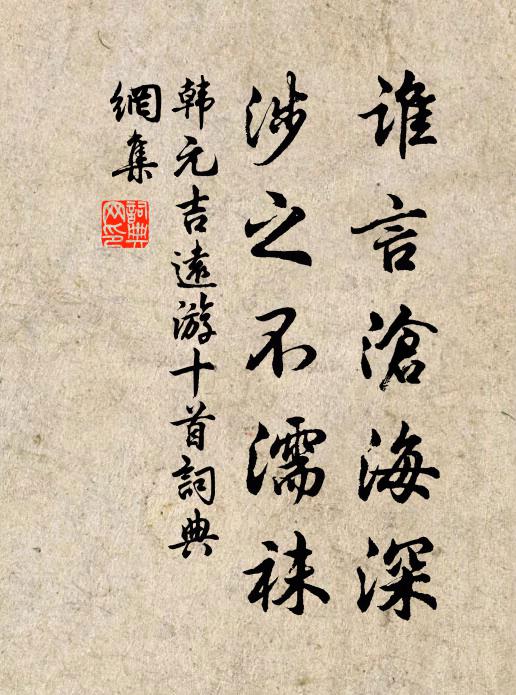 谁言滄海深
涉之不濡袜
韩元吉遠游十首詞典
網集
詞典
网印